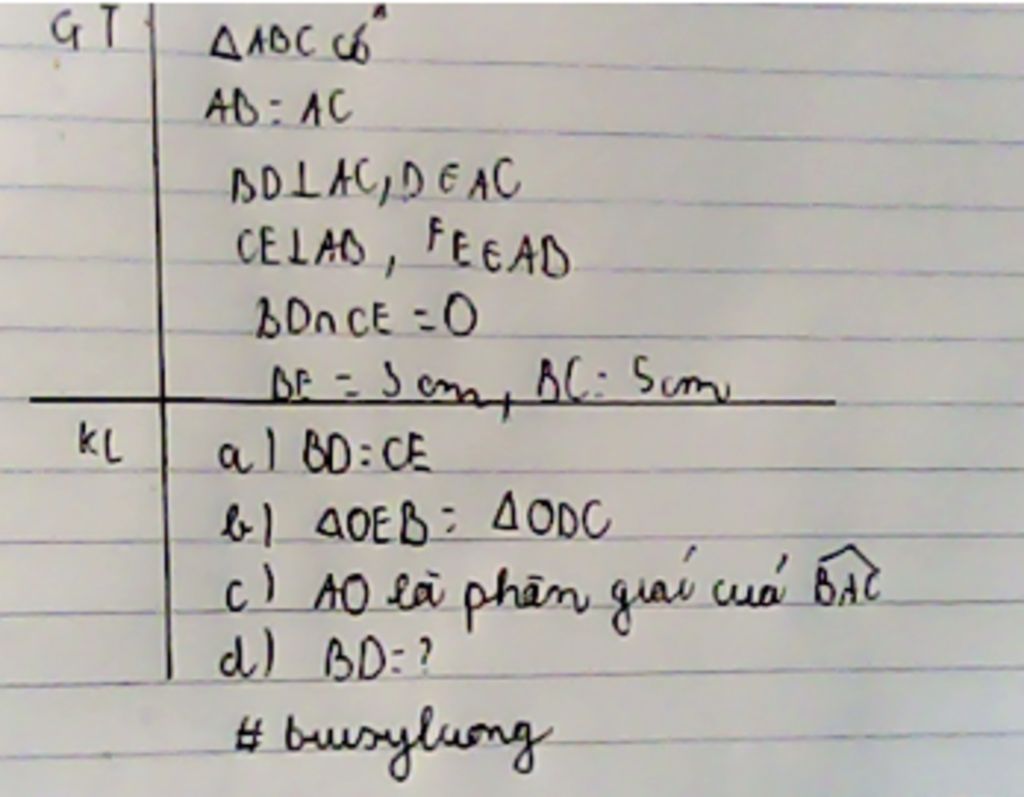 GT ΔABC có
AB = AC
BD⊥AC, D∈AC
CE⊥AB, E∈AB
BD∩CE = O
BE = 3 cm, BC = 5cm
KL a) BD = CE
b) ΔOEB = ΔODC
c) AO là phân giác của BAC
d) BD = ?